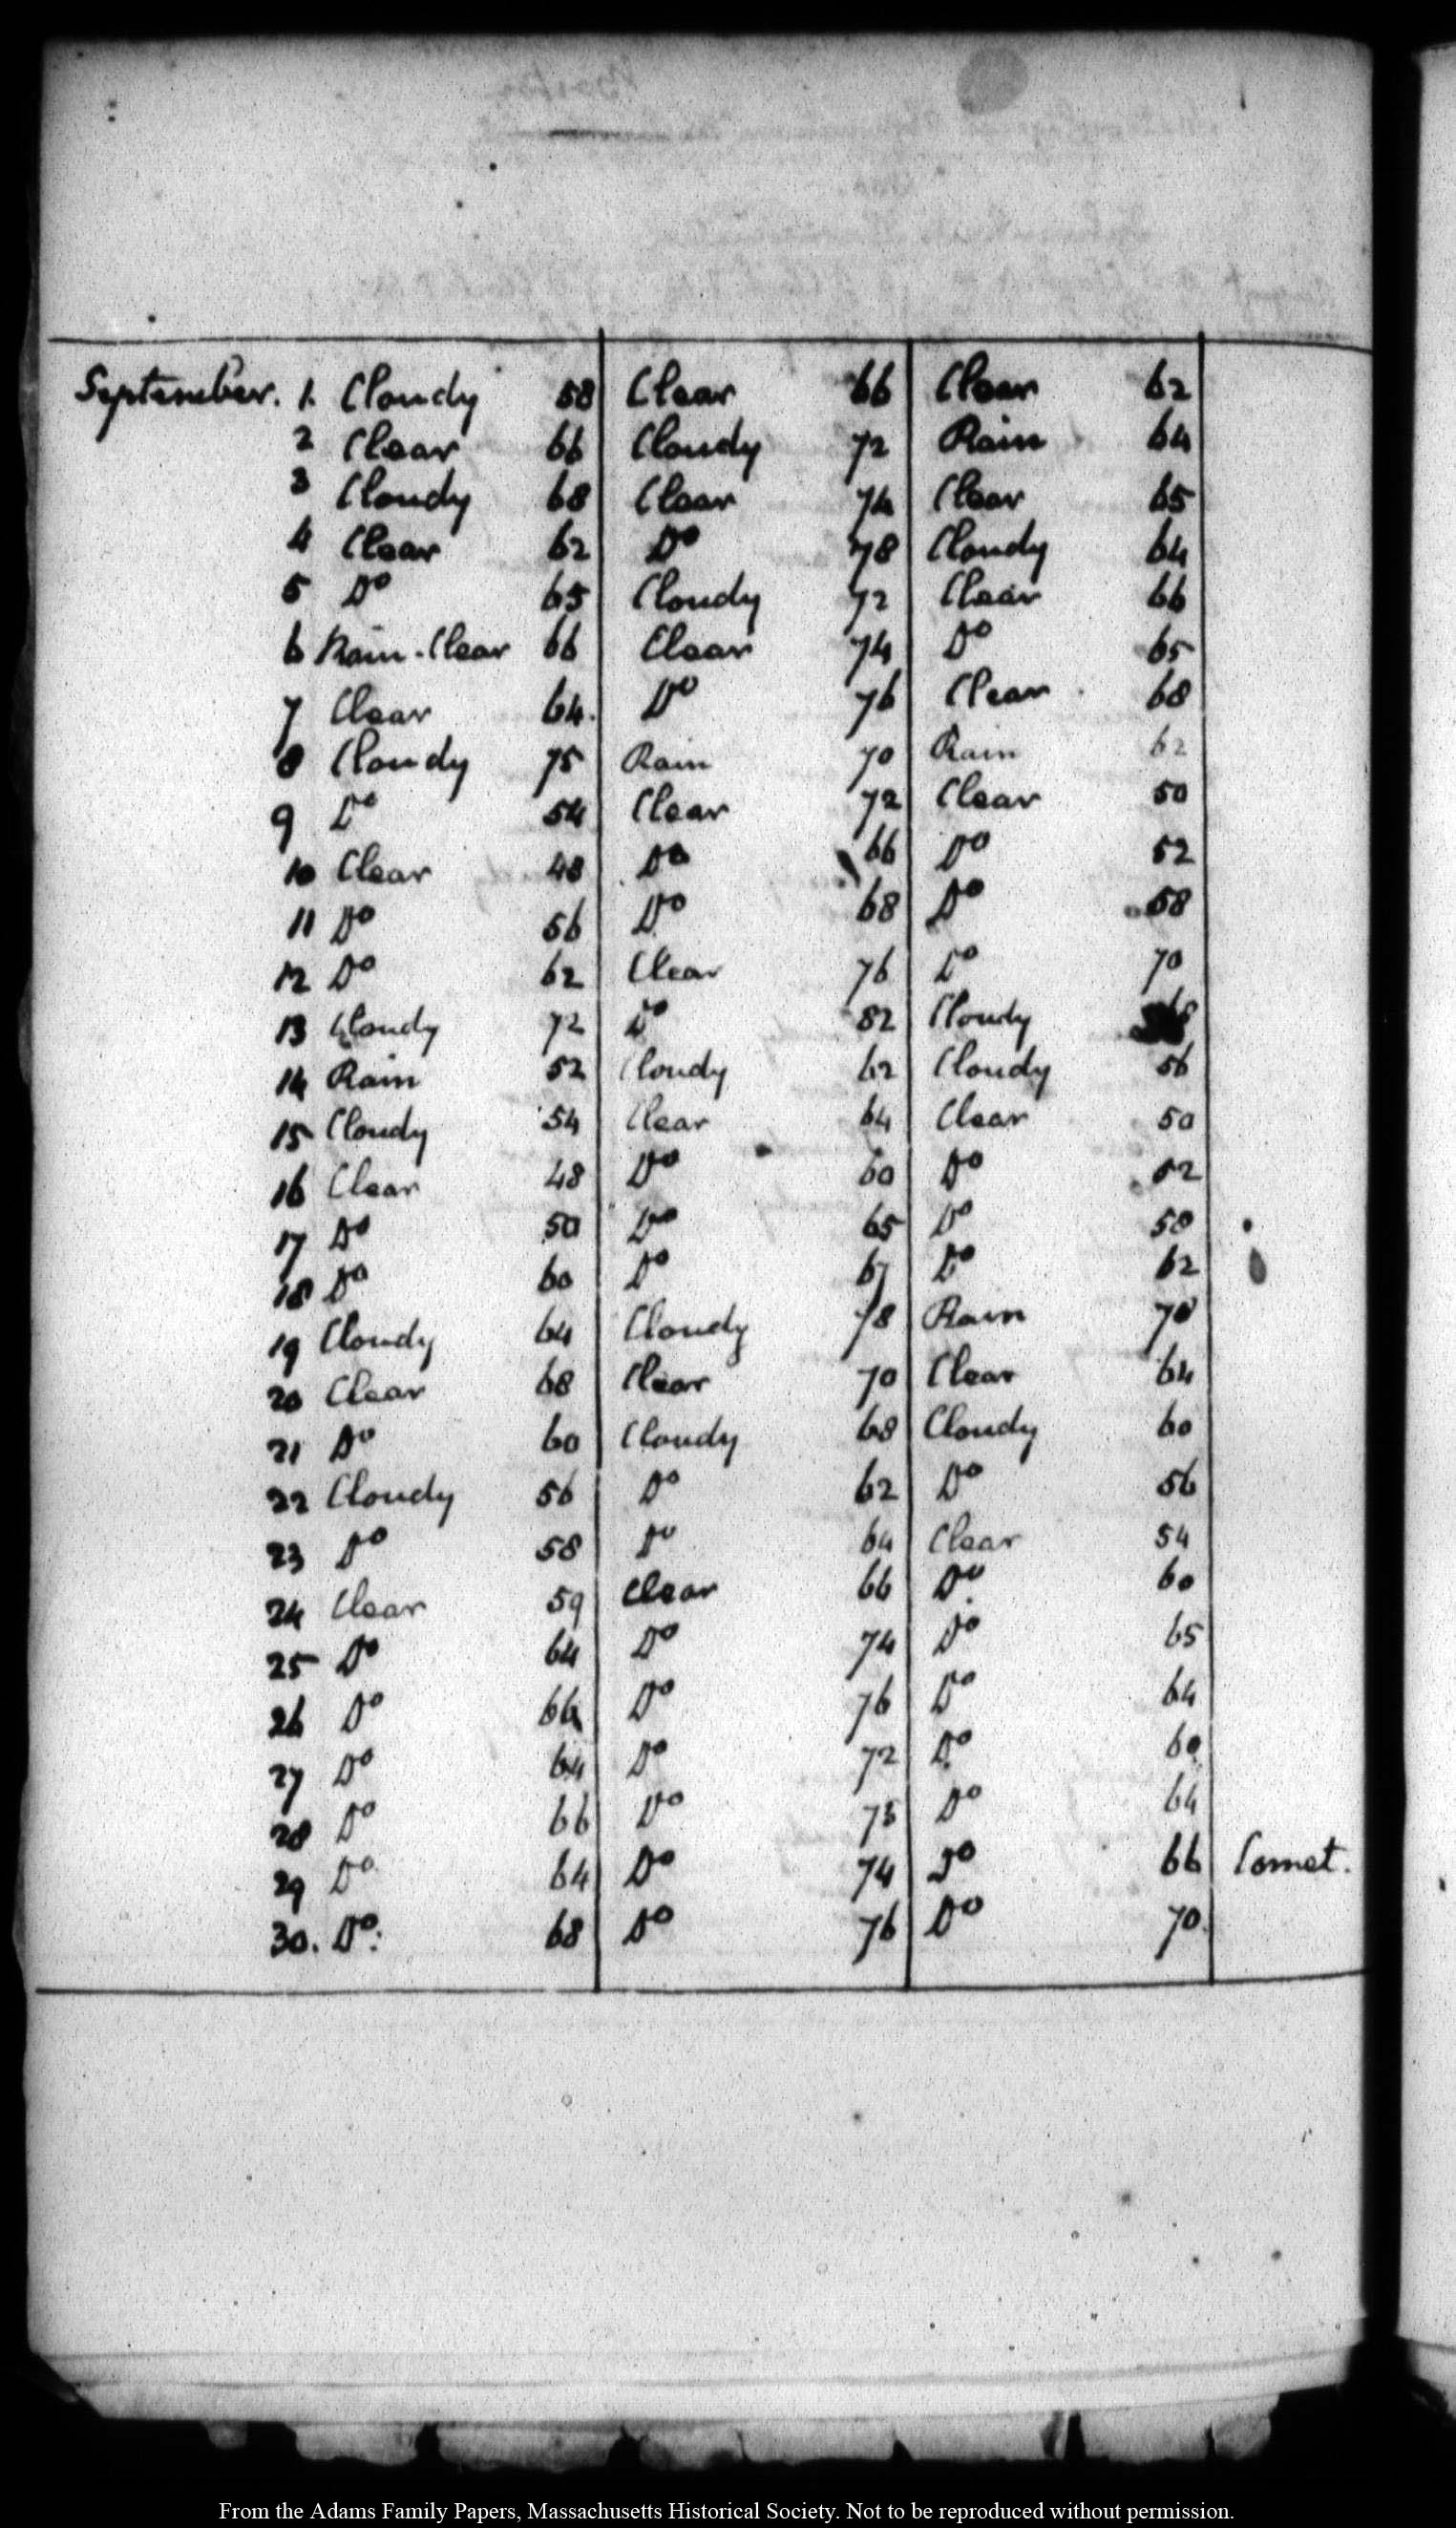 September. 1. Cloudy 58 Clear 66 Clear 62
2 Clear 66 Cloudy 72 Rain 64
3 Cloudy 68 Clear 74 Clear 65
4 Clear 62 Do 78 Cloudy 64
5 Do 65 Cloudy 72 Clear 66
6 Rain. Clear 66 Clear 74 Do 65
7 Clear 64. Do 76 Clear 68
8 Cloudy 75 Rain 70 Rain 62
9 Do 54 Clear 72 Clear 50
10 Clear 48 Do 66 Do 52
11 Do 56 Do 68 Do 58
12 Do 62 Clear 76 Do 70
13 Cloudy 72 Do 82 Cloudy
14 Rain 52 Cloudy 62 Cloudy 56
15 Cloudy 54 Clear 64 Clear 50
16 Clear 48 Do 60 Do 52
17 Do 50 Do 65 Do 58
18 Do 60 Do 67 Do 62
19 Cloudy 64 Cloudy 78 Rain 70
20 Clear 68 Clear 70 Clear 64
21 Do 60 Cloudy 68 Cloudy 60
22 Cloudy 56 Do 62 Do 56
23 Do 58 Do 64 Clear 54
24 Clear 59 Clear 66 Do 60
25 Do 64 Do 74 Do 65
26 Do 64 Do 76 Do 64
27 Do 64 Do 72 Do 60
28 Do 66 Do Do 64
29 Do 64 Do 74 Do 66 Comet.
30. Do. 68 Do 76 Do 70.
From the Adams Family Papers, Massachusetts Historical Society. Not to be reproduced without permission.